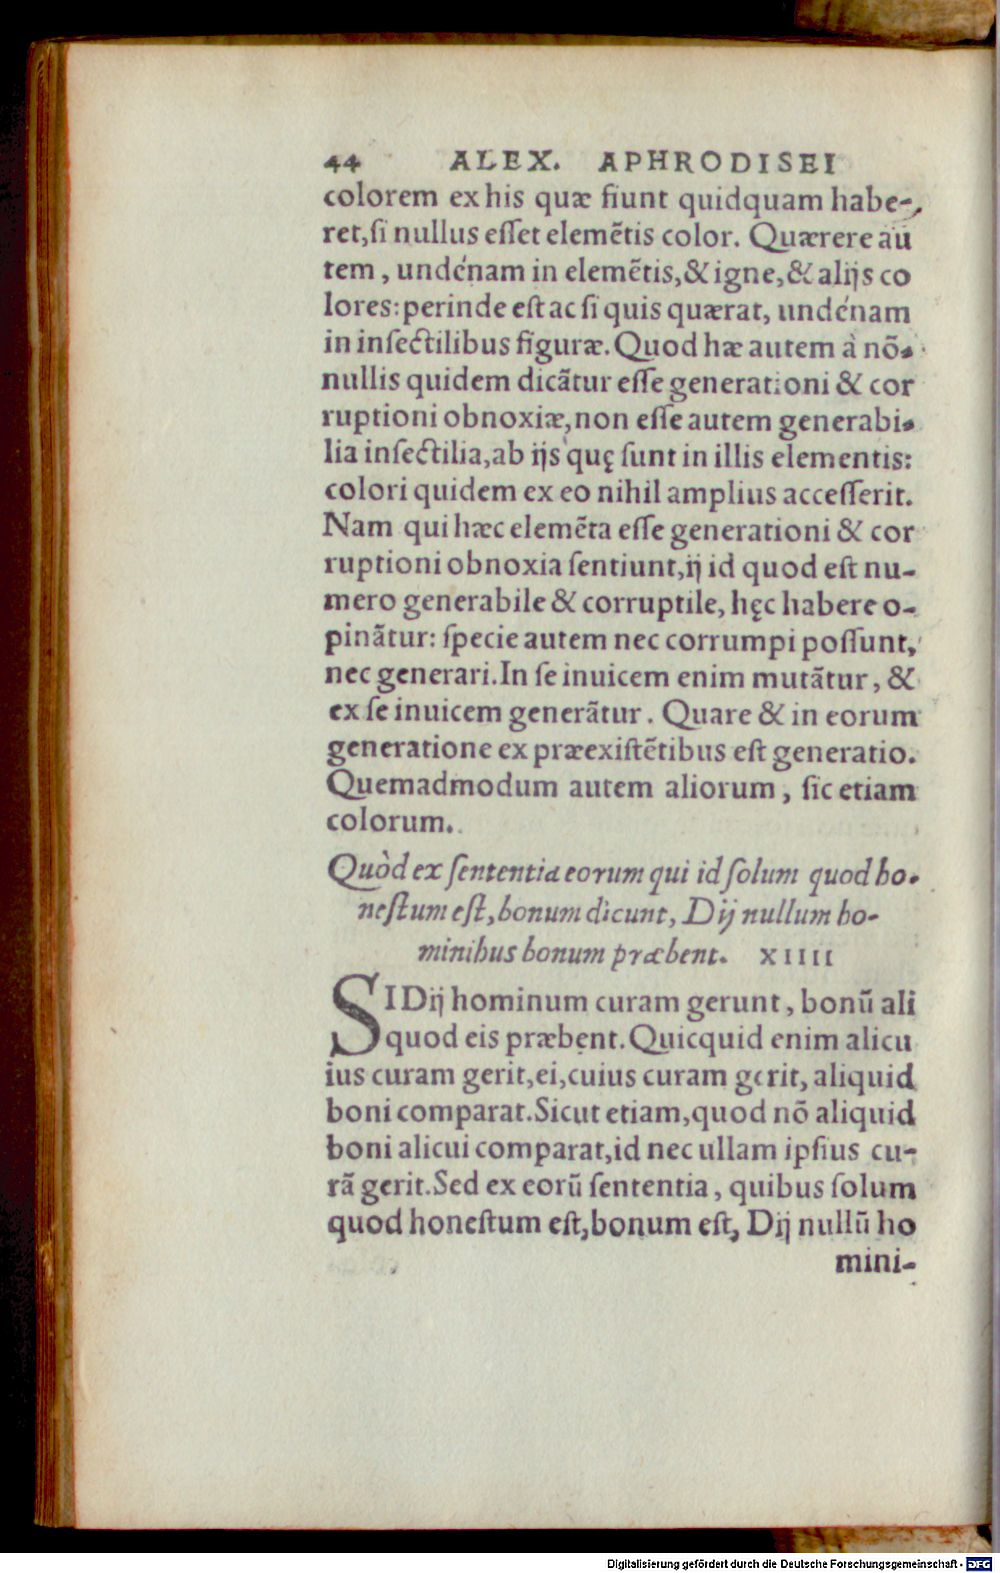 44 ALEX. APHRODISEI
colorem ex his quæ fiunt quidquam habe-
ret, si nullus esset elemẽtis color. Quærere au
tem, undénam in elemẽtis, & igne, & alijs co
lores: perinde est ac si quis quærat, undénam
in insectilibus figuræ. Quod hæ autem à nõ-
nullis quidem dicãtur esse generationi & cor
ruptioni obnoxiæ, non esse autem generabi-
lia insectilia, ab ijs quę sunt in illis elementis:
colori quidem ex eo nihil amplius accesserit.
Nam qui hæc elemẽta esse generationi & cor
ruptioni obnoxia sentiunt, ij id quod est nu-
mero generabile & corruptile, hęc habere o-
pinãtur: specie autem nec corrumpi possunt,
nec generari. In se inuicem enim mutãtur, &
ex se inuicem generãtur. Quare & in eorum
generatione ex præexistẽtibus est generatio.
Quemadmodum autem aliorum, sic etiam
colorum.
Quòd ex sententia eorum qui id solum quod ho-
nestum est, bonum dicunt, Dij nullum ho-
minibus bonum præbent. XIIII
SI Dij hominum curam gerunt, bonũ ali
quod eis præbent. Quicquid enim alicu
ius curam gerit, ei, cuius curam gerit, aliquid
boni comparat. Sicut etiam, quod nõ aliquid
boni alicui comparat, id nec ullam ipsius cu-
rã gerit. Sed ex eorũ sententia, quibus solum
quod honestum est, bonum est, Dij nullũ ho
mini-
Digitalisierung gefördert durch die Deutsche Forschungsgemeinschaft - DFG